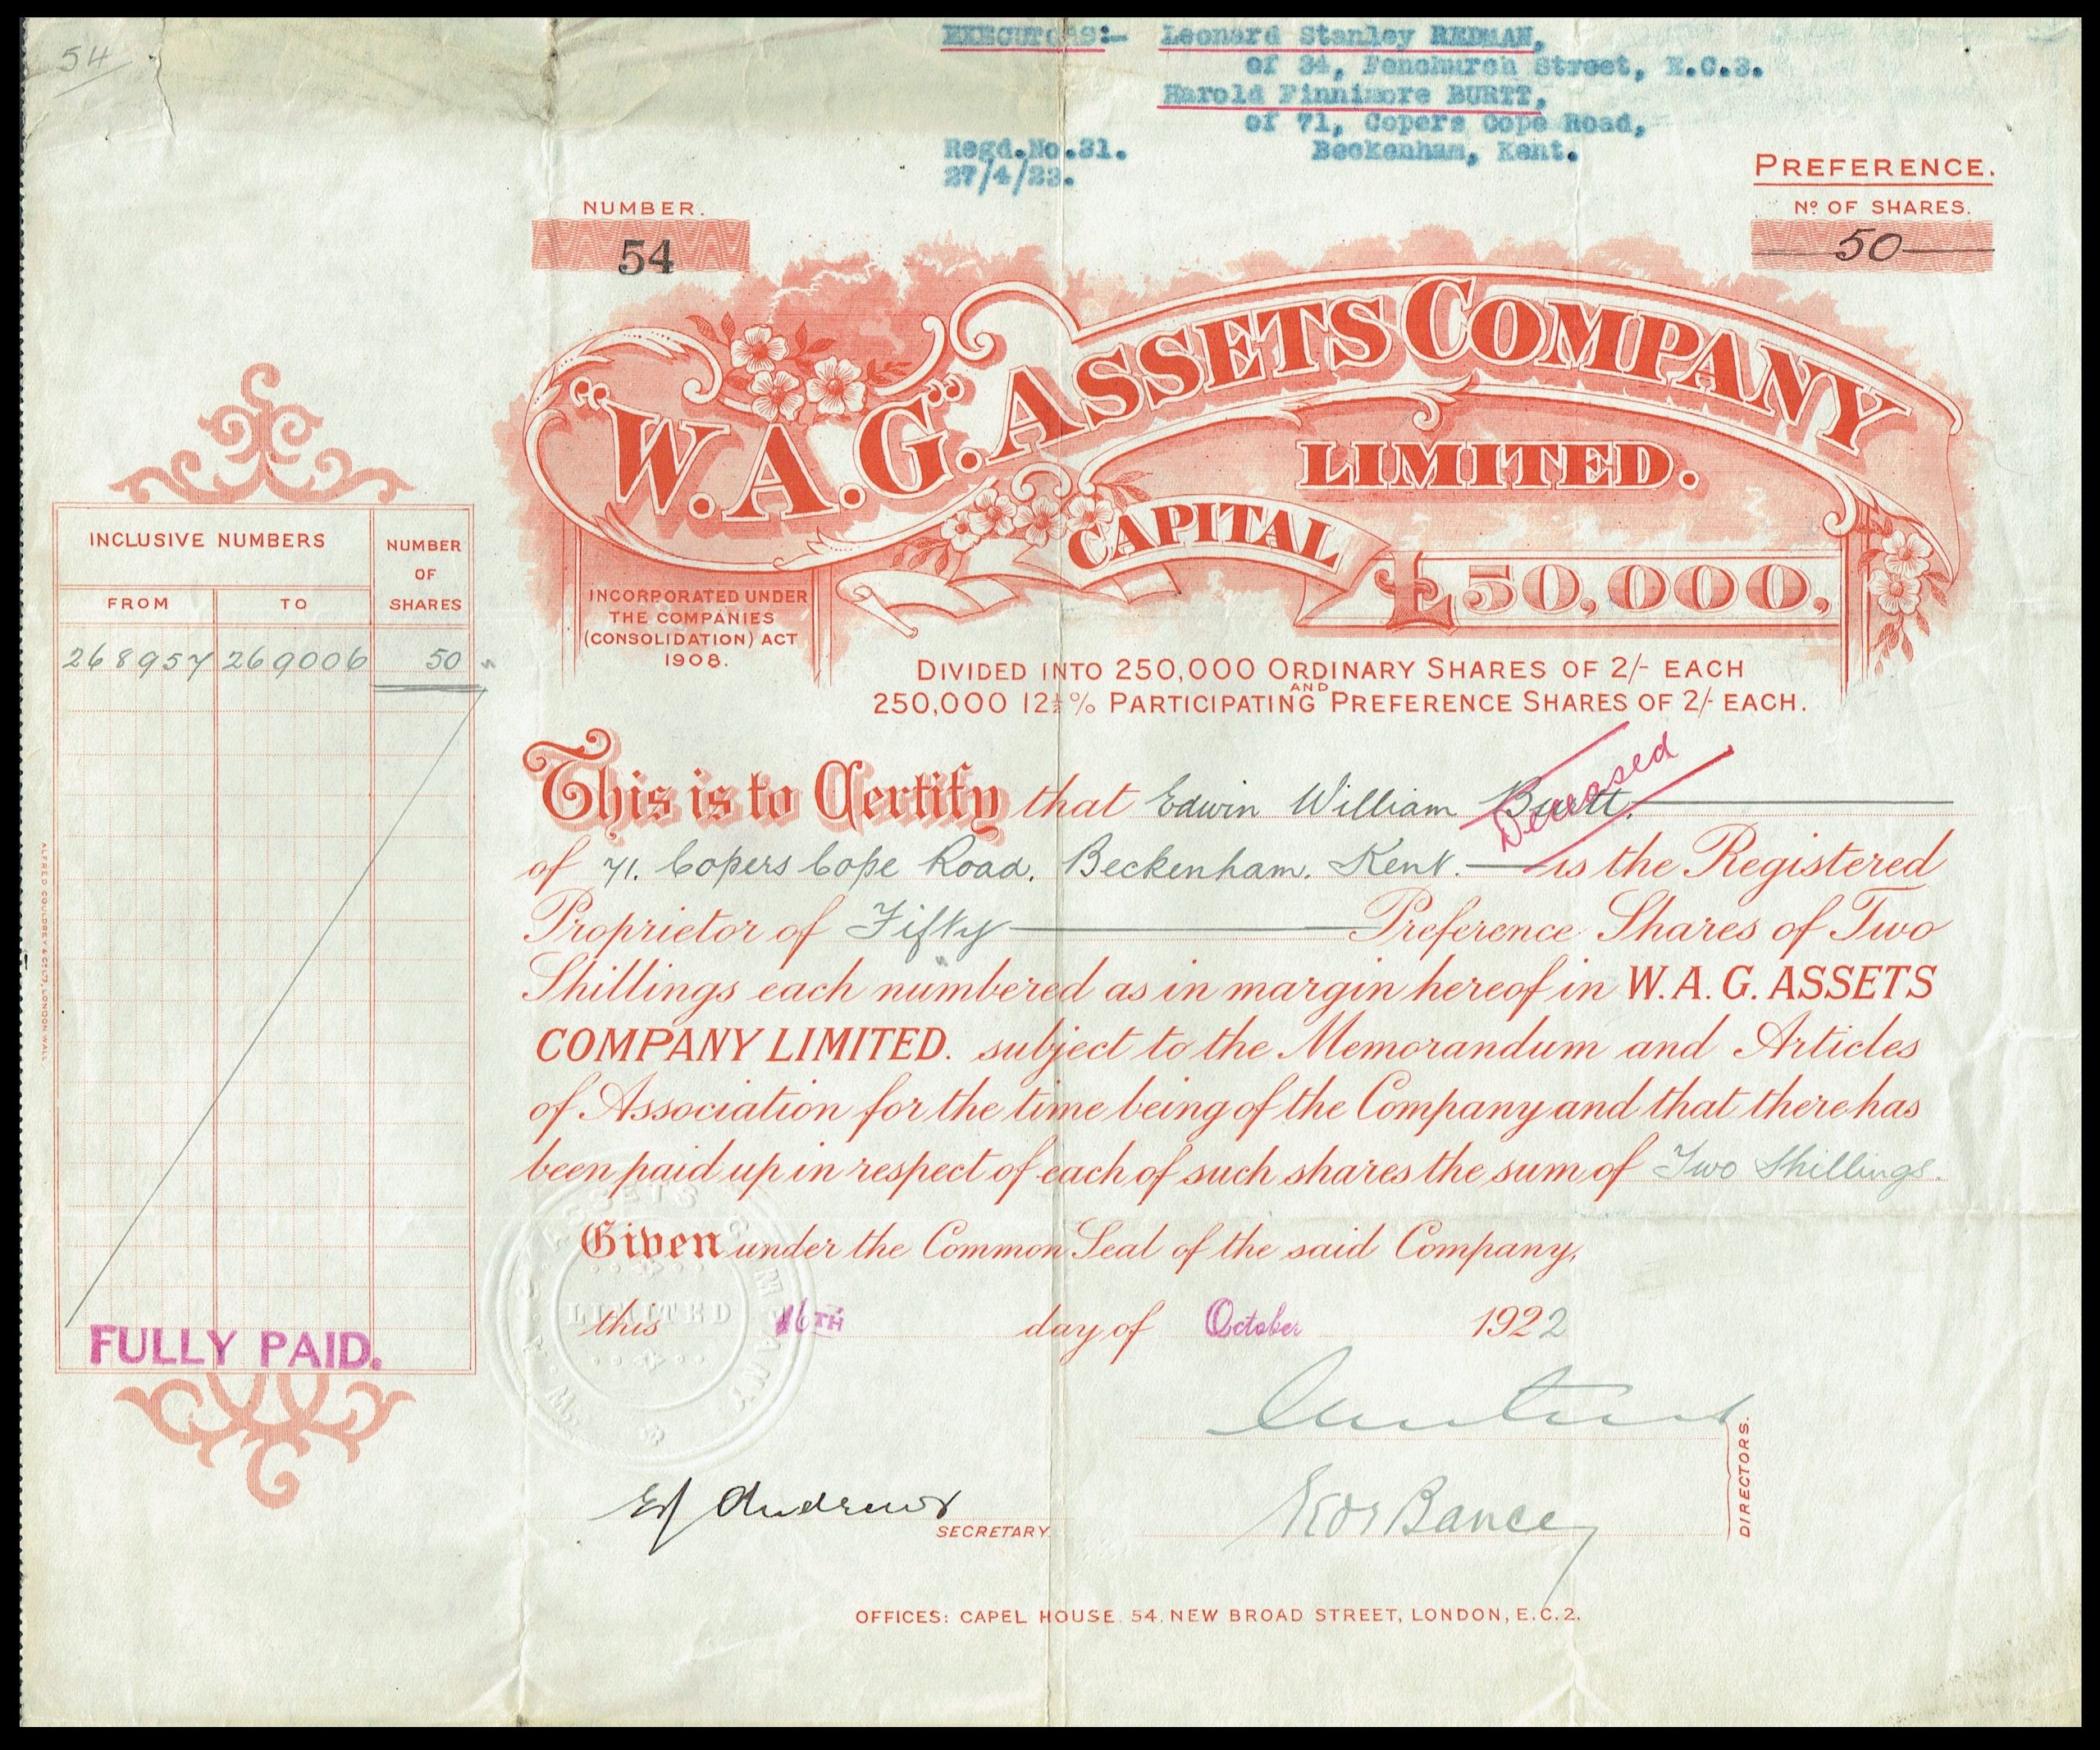 54
EXECUTORS:- Leonard Stanley REDMAN,
of 34, Fenchurch Street, E.C.3.
Harold Finnimore BURTT,
of 71, Copers Cope Road,
Beckenham, Kent.
Regd.No.31.
27/4/23.
PREFERENCE.
NUMBER.
54
Nº OF SHARES.
50
"W.A.G." ASSETS COMPANY
LIMITED.
CAPITAL
£50,000,
INCORPORATED UNDER
THE COMPANIES
(CONSOLIDATION) ACT
1908.
DIVIDED INTO 250,000 ORDINARY SHARES OF 2/- EACH
AND
250,000 12½% PARTICIPATING PREFERENCE SHARES OF 2/- EACH.
INCLUSIVE NUMBERS
NUMBER OF SHARES
FROM TO
268957 269006 50
This is to Certify that Edwin William Burtt.
Deceased
of 71. Copers Cope Road. Beckenham. Kent. is the Registered
Proprietor of Fifty Preference Shares of Two
Shillings each numbered as in margin hereof in W.A.G. ASSETS
COMPANY LIMITED. subject to the Memorandum and Articles
of Association for the time being of the Company and that there has
been paid up in respect of each of such shares the sum of Two Shillings.
Given under the Common Seal of the said Company,
this 16TH day of October 1922
W.A.G. ASSETS COMPANY
LIMITED
FULLY PAID.
Andrews
SECRETARY.
DIRECTORS.
OFFICES: CAPEL HOUSE. 54, NEW BROAD STREET, LONDON, E.C.2.
ALFRED COULDREY & CO LTD, LONDON WALL